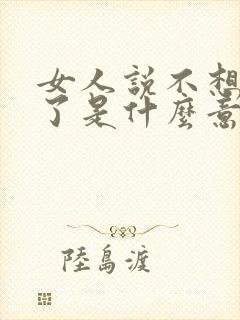 女人説不想
了是什麼意
陸島渡